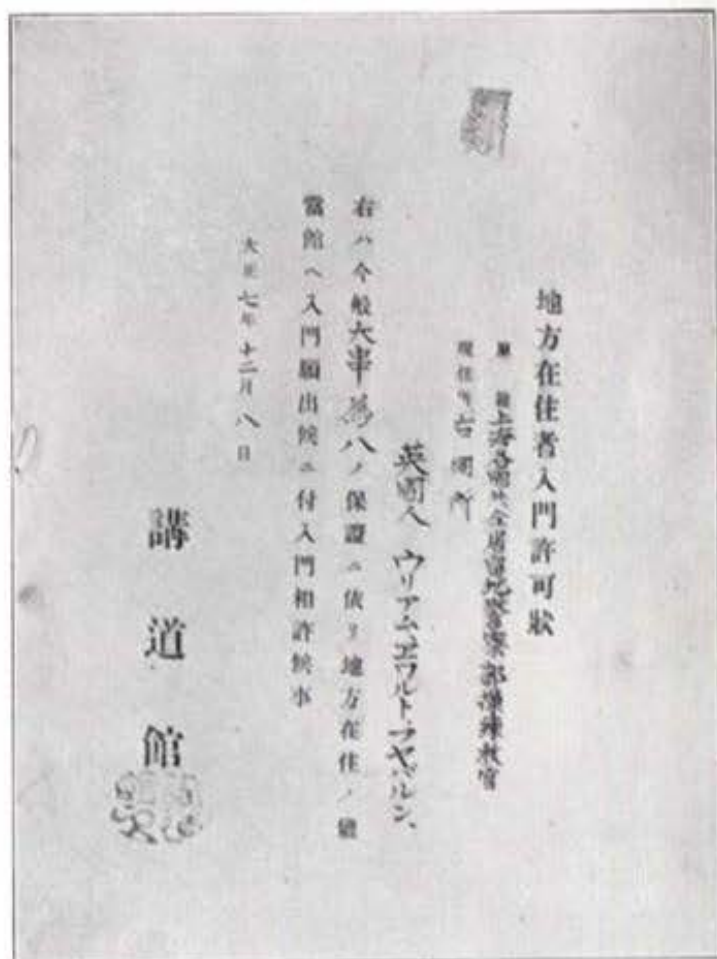 地方在住者入門許可狀
原籍 上海各國共仝居留地警察部漕練教官
現住所 右
英國人 ウリアム、ヱワルト、フヤバルン、
右ハ今般大串萬八ノ保證ニ依リ地方在住ノ儘
當館ヘ入門願出候ニ付入門相許候事
大正七年十二月八日
講道館